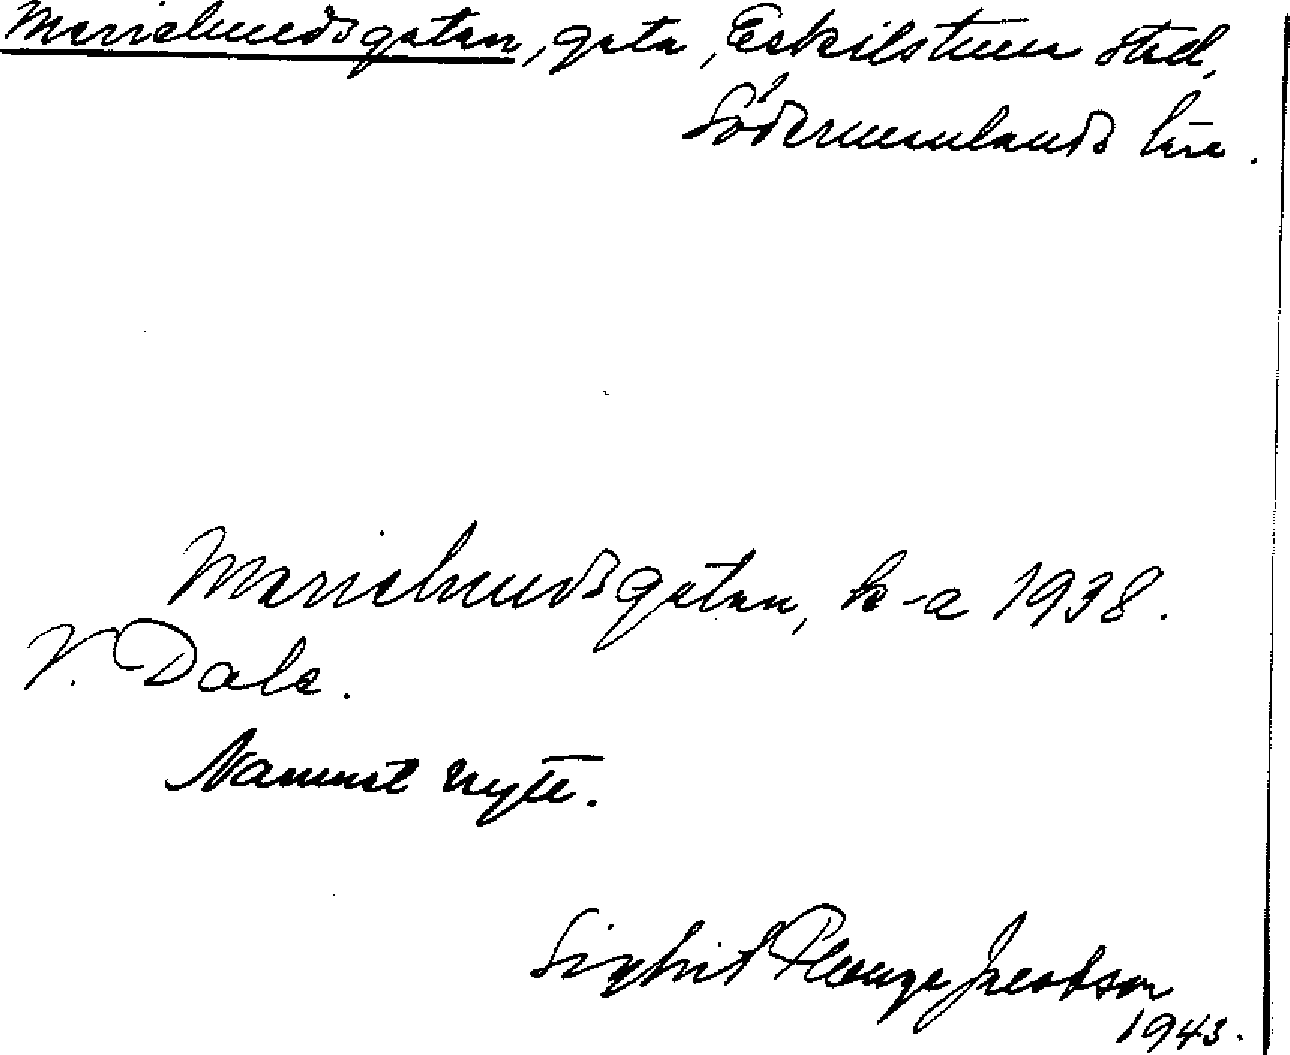 Mariehvedsgatan, gata, Eskilstuna stad,
Södermanlands län.
Mariehvedsgatan, k-a 1938.
V. Dala.
Namnet nytt.
Sigbrit Plænge Jacobson
1943.